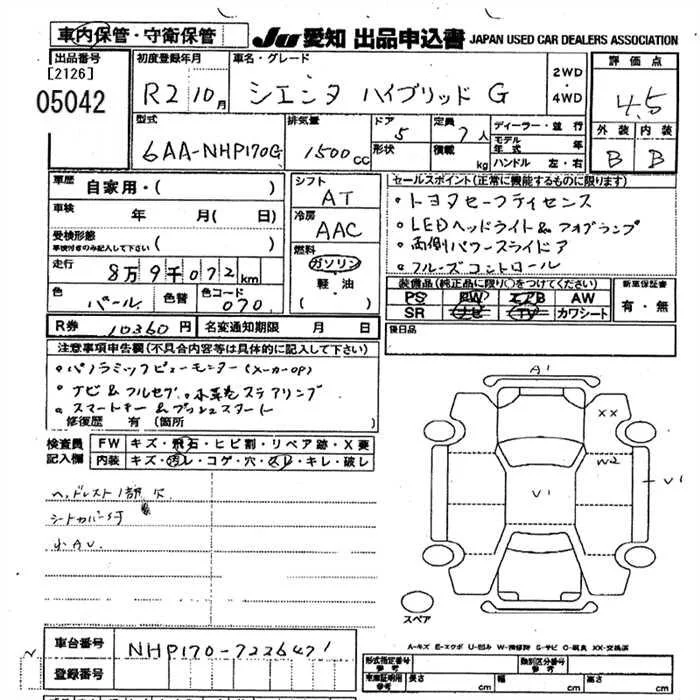 車内保管・守衛保管
JU 愛知 出品申込書 JAPAN USED CAR DEALERS ASSOCIATION
出品番号 [2126] 05042
初度登録年月 R2 10月
車名・グレード シエンタ ハイブリッド G
2WD・4WD
評価点 4.5
外装 内装
B B
型式 6AA-NHP170G
排気量 1500cc
ドア 5 形状
定員 7人 積載 kg
ディーラー・並行
モデル年式 年
ハンドル 左・右
車歴 自家用・( )
車検 年 月( 日)
受検形態 車検付きのみ記入して下さい ( )
走行 8万9千072km
色 パール 色替 色コード 070
シフト AT
冷房 AAC
燃料 ガソリン 軽・油
セールスポイント(正常に機能するものに限ります)
・トヨタセーフティセンス
・LEDヘッドライト&フォグランプ
・両側パワースライドア
・クルーズコントロール
装備品(純正品に限り○をつけてください)
PS PW エアB AW
SR ナビ TV カワシート
新車保証書 有・無
後日品
R券 10360円 名変通知期限 月 日
注意事項申告欄(不具合内容等は具体的に記入して下さい)
・パノラミックビューモニター(メーカーOP)
・ナビ&フルセグ・本革巻ステアリング
・スマートキー&プッシュスタート
修復歴 有(箇所
検査員記入欄
FW キズ・飛石・ヒビ割・リペア跡・X要
内装 キズ・汚レ・コゲ・穴・スレ・キレ・破レ
ヘッドレスト1部欠
シートカバー付
小AU
A1
XX
W2
U1
U1
スペア
A-キズ E-エクボ U-凹み W-補修跡 S-サビ C-腐食 XX-交換済
車台番号 NHP170-7226471
登録番号
形式指定番号 参考
類別区分番号 参考
車庫証明用 参考 長さ cm 幅 cm 高さ cm